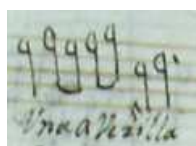 Vna aVezilla